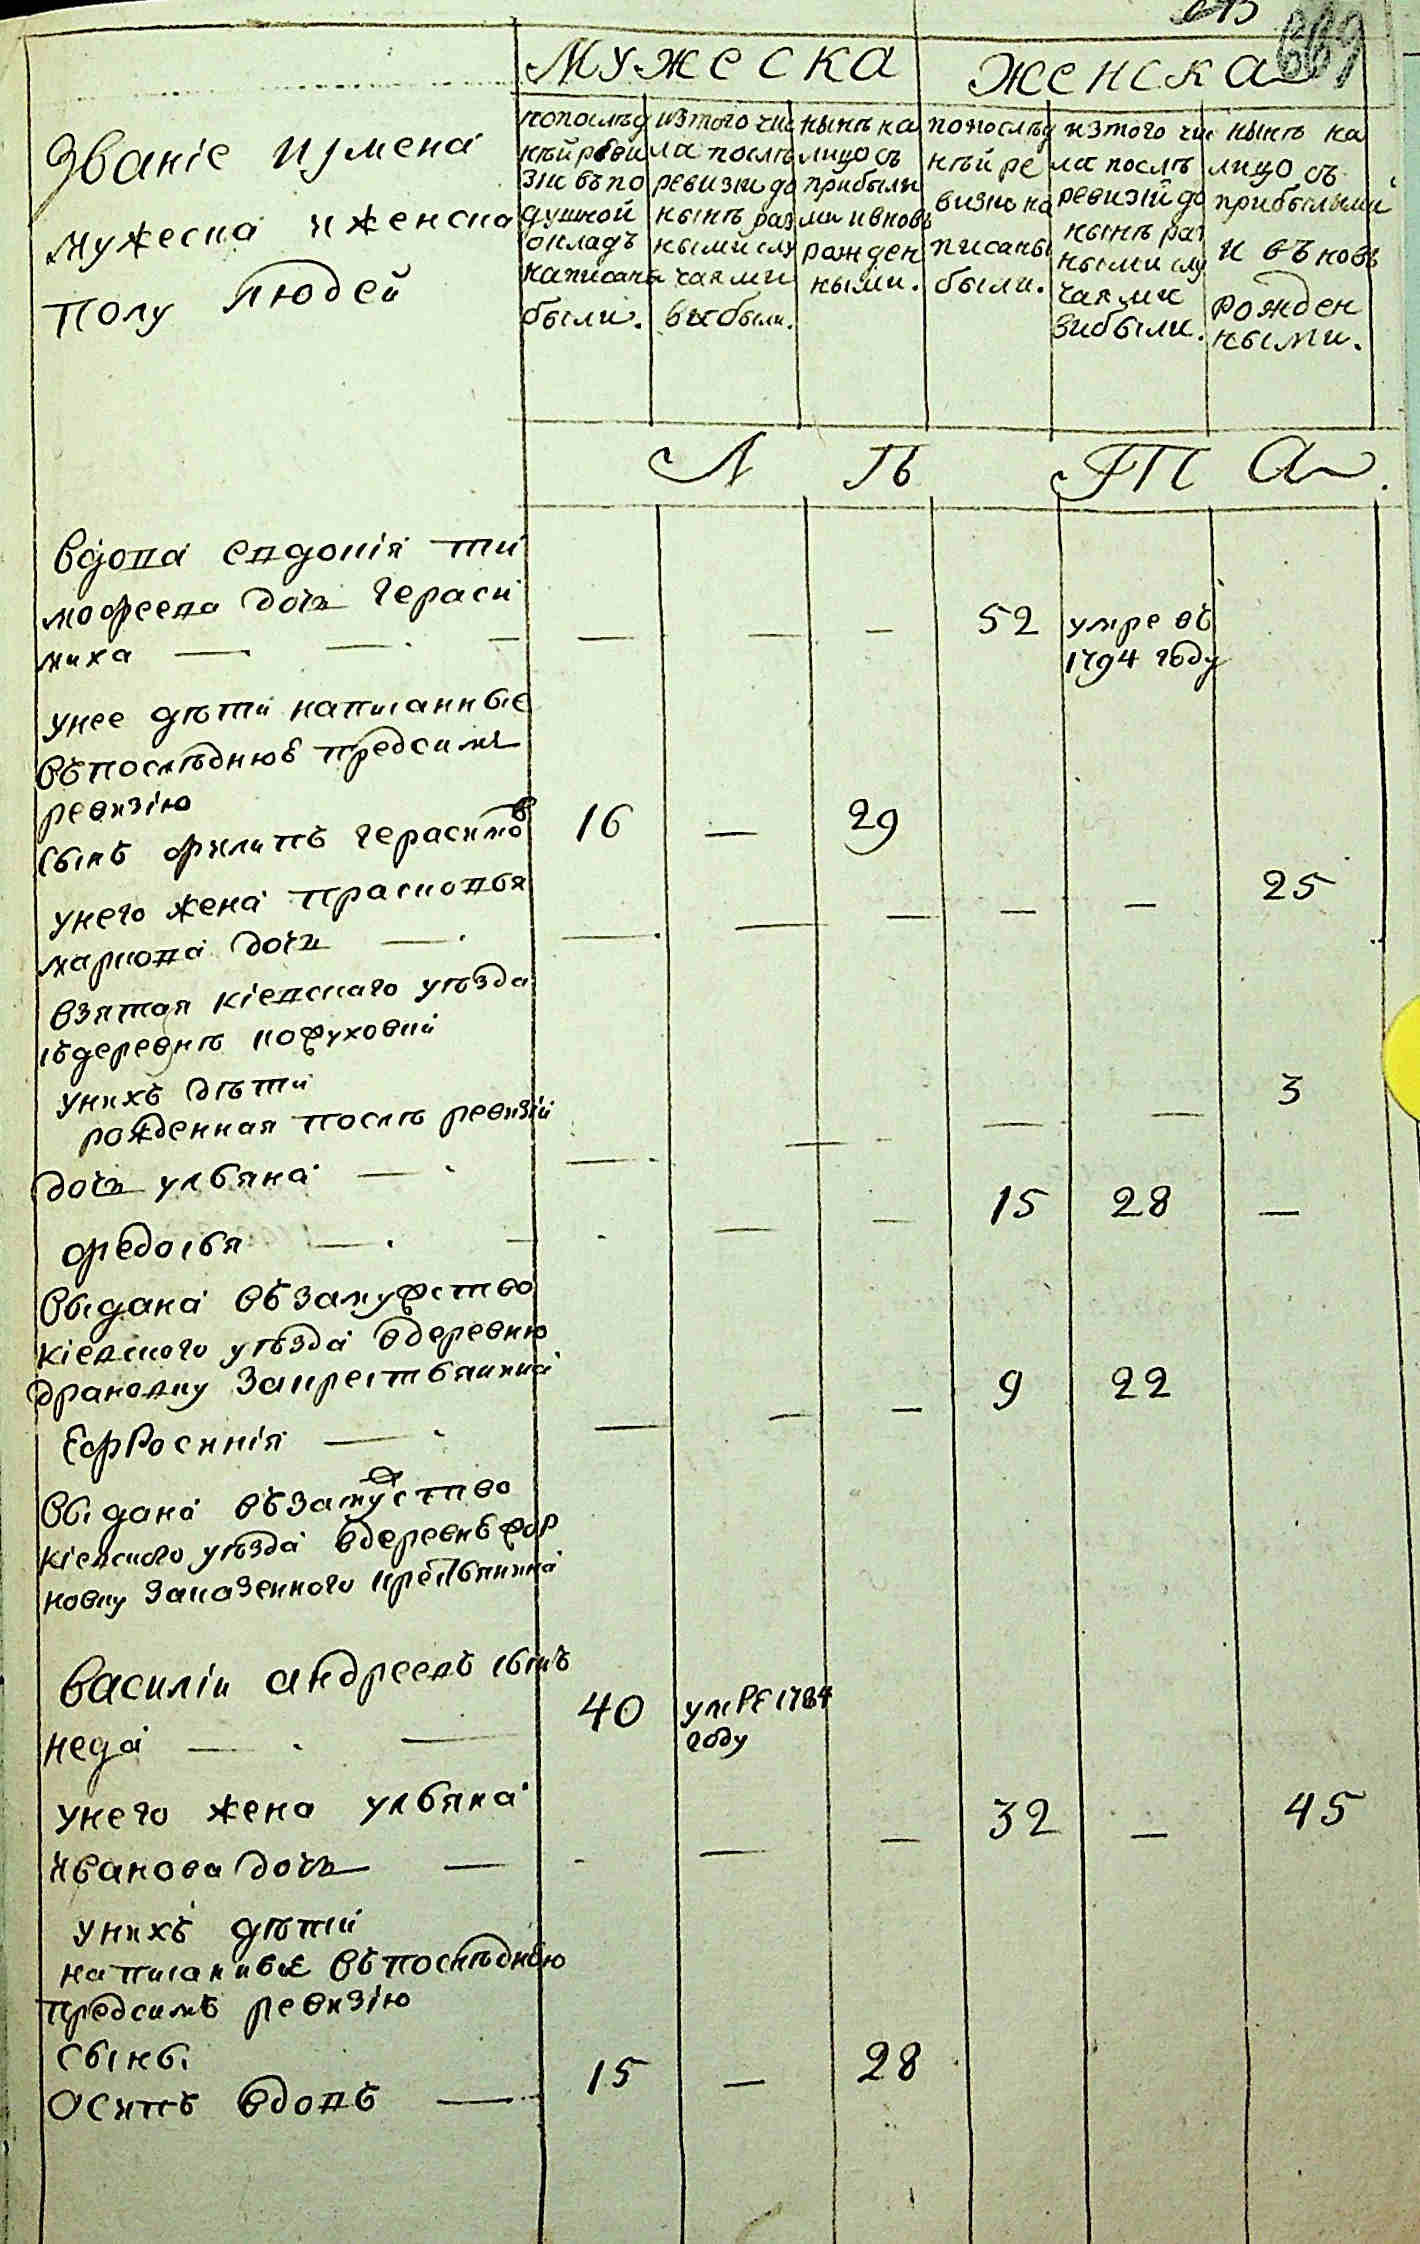 669
Мужеска
женска
Званіе и имена
мужеска и женска
полу людей
попослѣд
нѣй реви
зіи въ по
душной
окладъ
написаны
были.
изтого чис
ла послѣ
ревизіи до
нынѣ раз
ными слу
чаями
выбыли.
нынѣ на
лицо съ
прибылы
ми ивновь
рожден
ными.
попослѣд
нѣй ре
визіи на
писаны
были.
изтого чис
ла послѣ
ревизіи до
нынѣ раз
ными слу
чаями
вибыли.
нынѣ на
лицо съ
прибылыми
и въ новь
рожден
ными.
Л Ѣ Т А
вдова евдокія ти
мофеева дочь Гераси
миха — — — — — — 52 умре въ
1794 году
унее дѣти написанные
въпослѣднюю предсимъ
ревизію
сынъ филипъ герасимовъ 16 — 29
унего жена прасковья — — — — — 25
маркова дочь —
взятая кіевскаго уѣзда
ъдеревнѣ
унихъ дѣти
рожденная послѣ ревизіи
дочь ульяна — — — — — — 3
федосья — — — 15 28 —
выдана възамужство
кіевского уѣзда вдеревню
закрестьянина
Ефросинія — — — — 9 22
выдана възамужство
кіевского уѣзда
новку заказенного крестьянина
василіи андреевъ сынъ
неда — — 40 умре 1784
году
унего жена ульяна
иванова дочь — — — — 32 — 45
унихъ дѣти
написанные въпослѣднюю
предсимъ ревизію
сыны
Осипъ вдовъ — 15 — 28